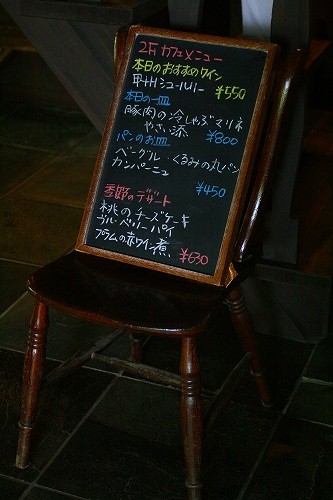 2F カフェメニュー
本日のおすすめワイン
甲州シュールリー
¥550
本日の一皿
豚肉の冷しゃぶマリネ
やさい添
¥800
パンのお皿
ベーグル・くるみの丸パン
カンパーニュ
¥450
季節のデザート
桃のチーズケーキ
ブルーベリーパイ
プラムの赤ワイン煮
¥630